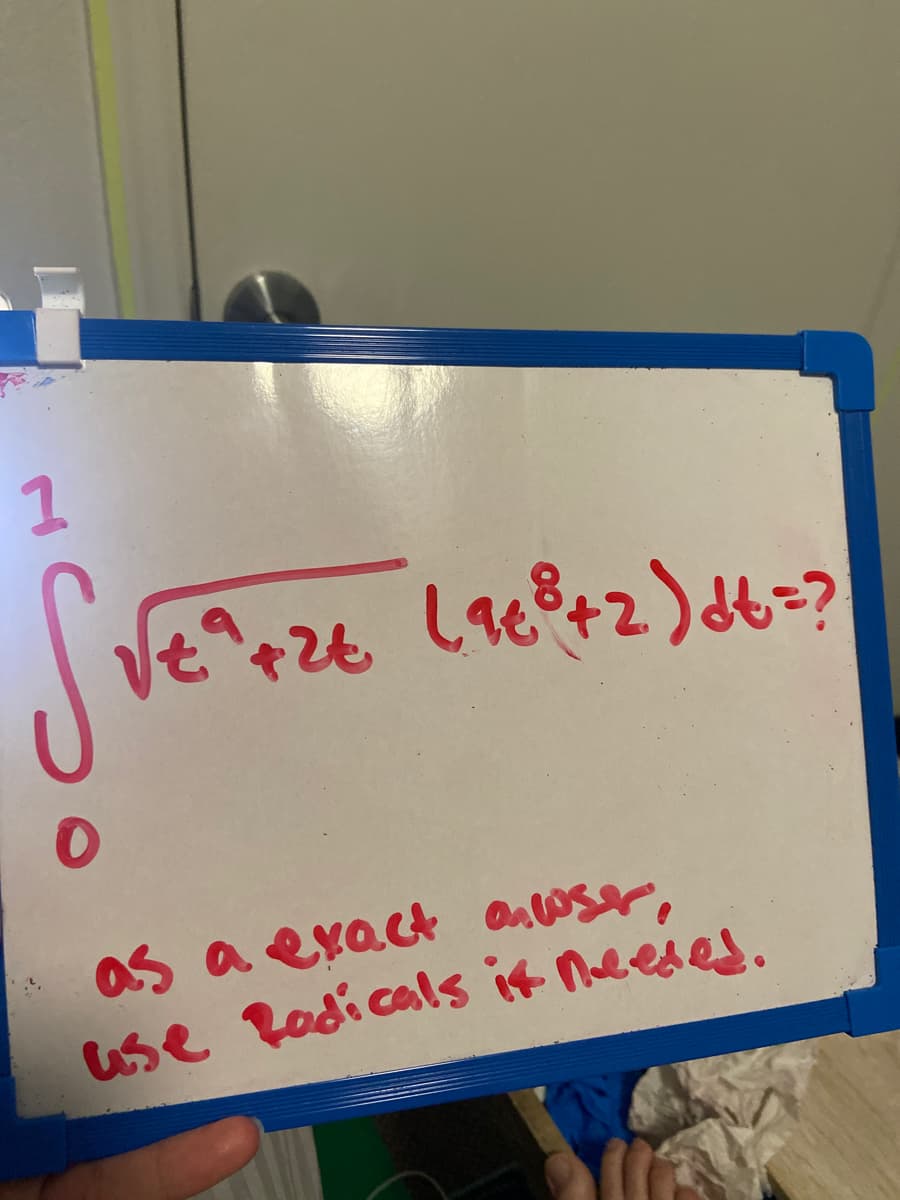 1
∫ √t⁹+2t (9t⁸+2) dt=?
0
as a exact anwser,
use Radicals if needed.